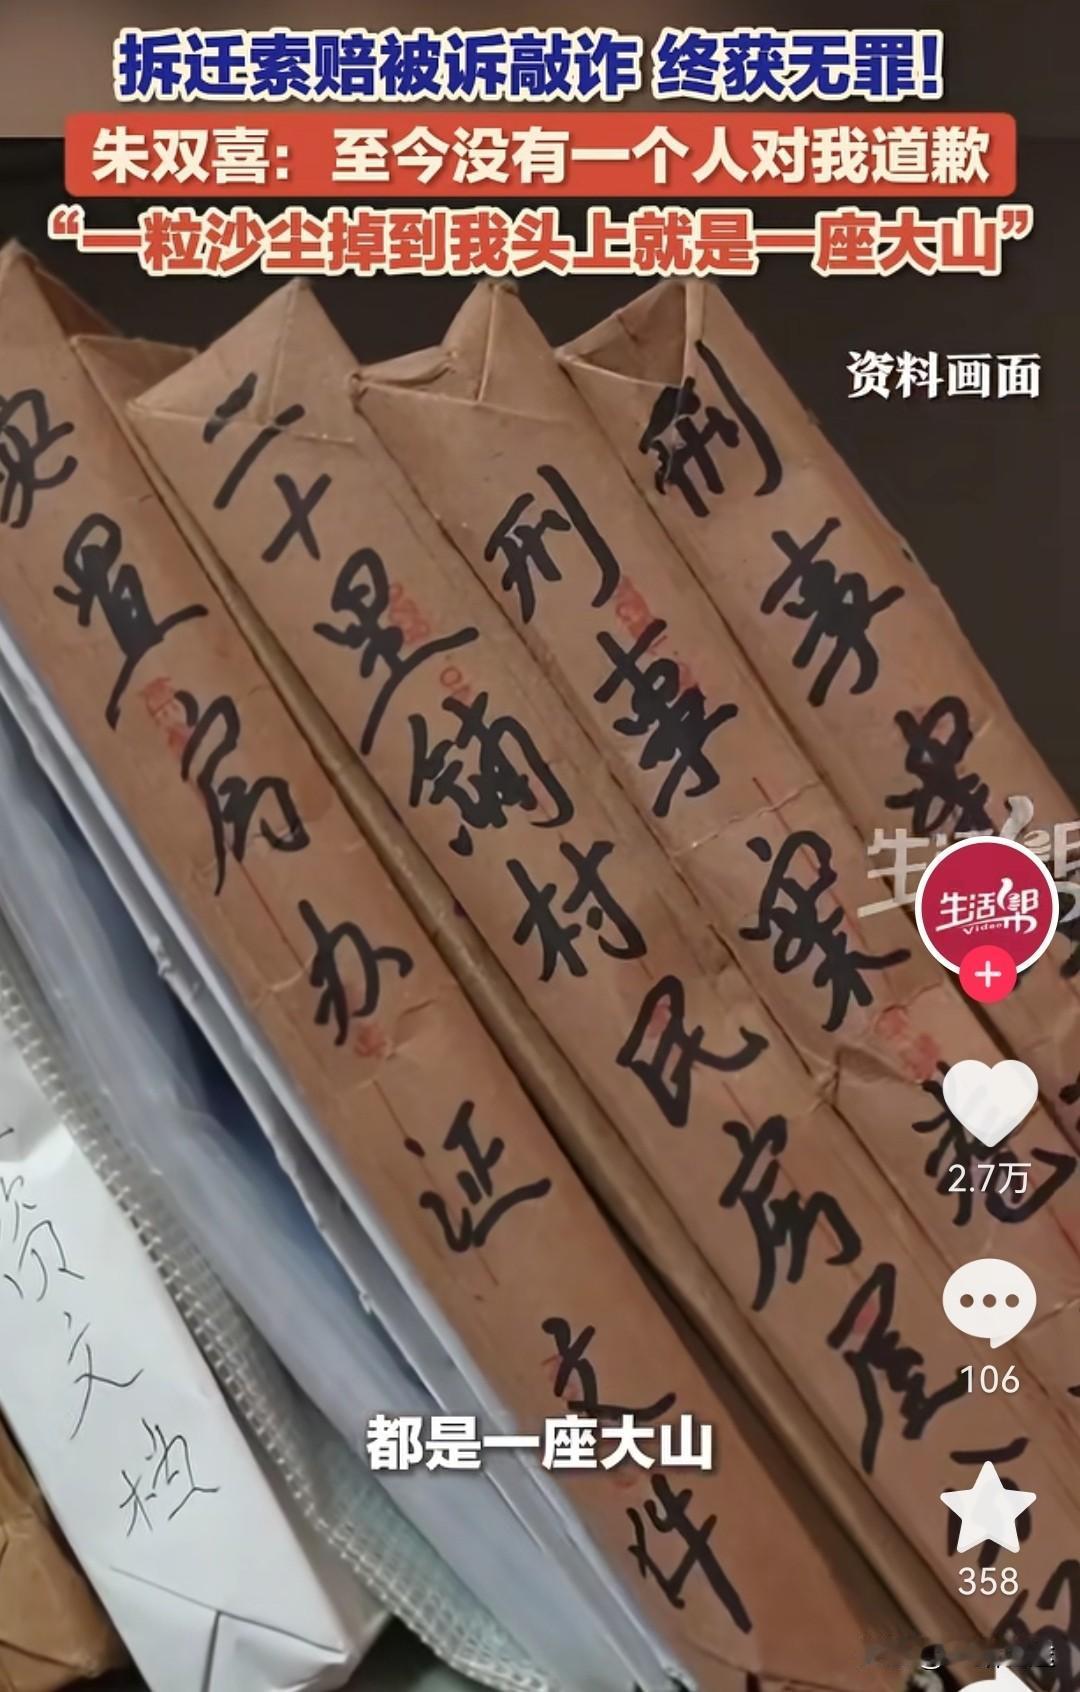 拆迁索赔被诉敲诈 终获无罪!
朱双喜：至今没有一个人对我道歉
“一粒沙尘掉到我头上就是一座大山”
资料画面
置房办证文件
二十里铺村民房屋
刑事案卷
刑事案
资文档
生活帮
生活帮
Video
2.7万
106
358
都是一座大山